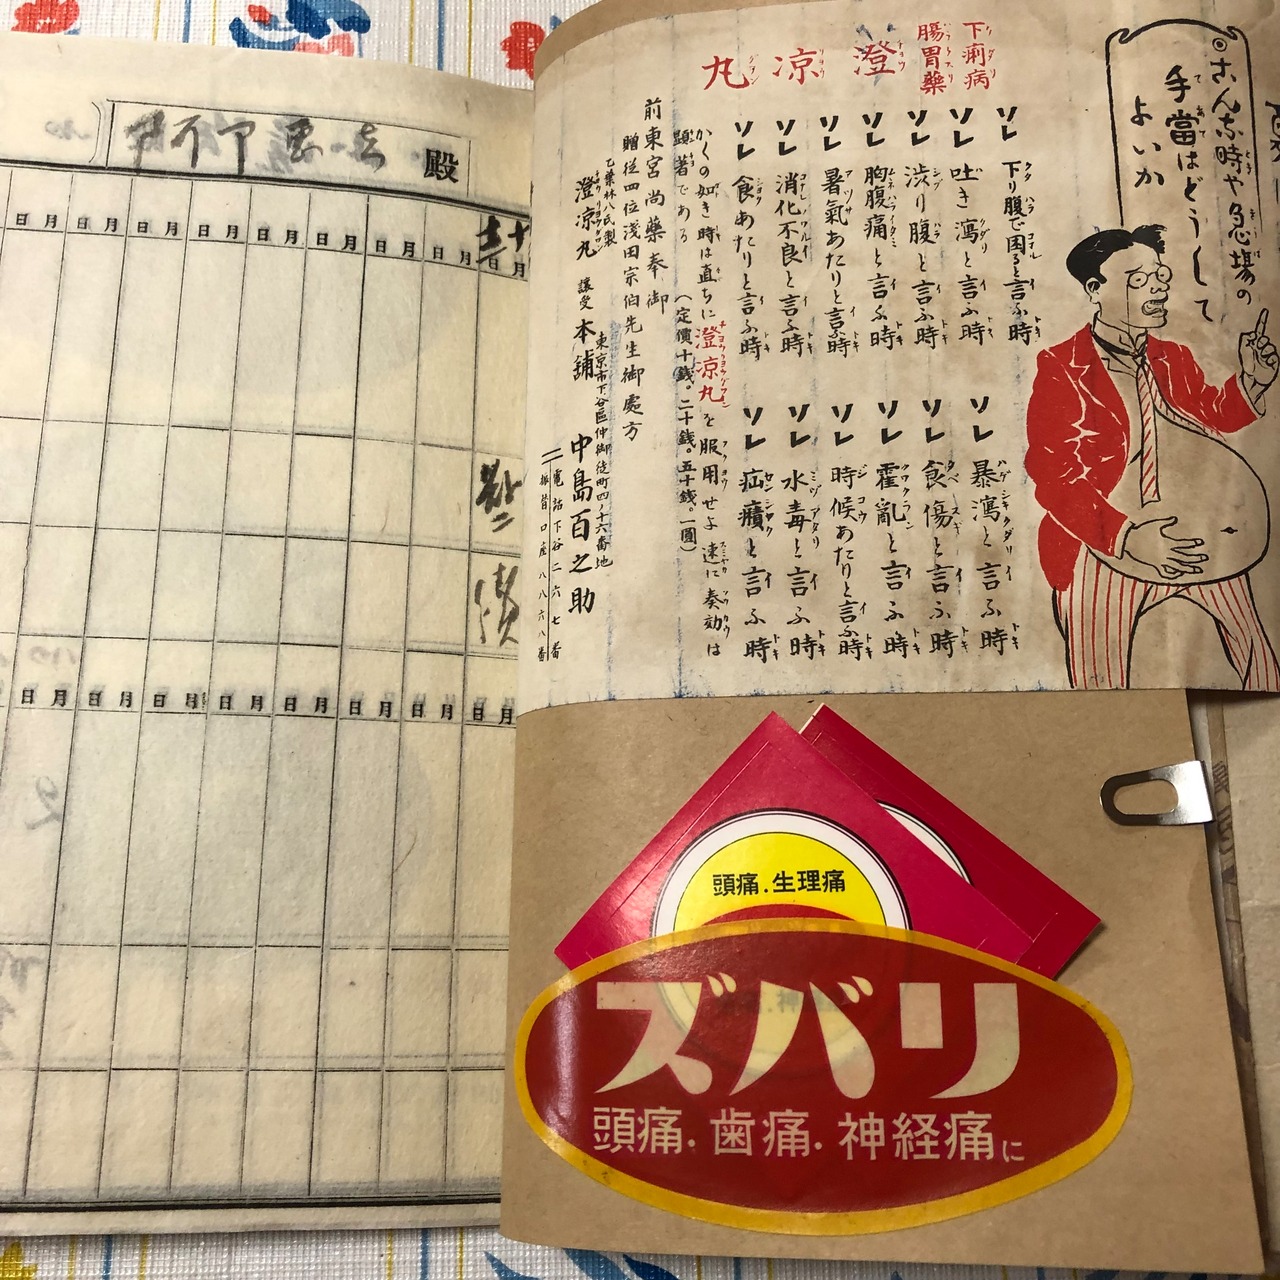 ◎こんな時や急場の
手當はどうして
よいか
下痢病
腸胃藥
澄涼丸
ソレ 下り腹で困ると言ふ時
ソレ 吐き瀉と言ふ時
ソレ 渋り腹と言ふ時
ソレ 胸腹痛と言ふ時
ソレ 暑氣あたりと言ふ時
ソレ 消化不良と言ふ時
ソレ 食あたりと言ふ時
ソレ 暴瀉と言ふ時
ソレ 食傷と言ふ時
ソレ 霍亂と言ふ時
ソレ 時候あたりと言ふ時
ソレ 水毒と言ふ時
ソレ 疝癪と言ふ時
かくの如き時は直ちに澄涼丸を服用せよ速に奏効は
顕著である (定價十銭。二十銭。五十銭。一圓)
前東宮尚藥奉御
贈従四位浅田宗伯先生御處方
乙葉林八氏製
澄涼丸 譲受 本舗
東京市下谷區仲御徒町四ノ十六番地
中島百之助
電話下谷二六七番
振替口座八八六八番
殿
日 月 日 月 日 月 日 月 日 月 日 月 日 月 日 月
日 月 日 月 日 月 日 月 日 月 日 月 日 月 日 月
頭痛.生理痛
ズバリ
頭痛.歯痛.神経痛に